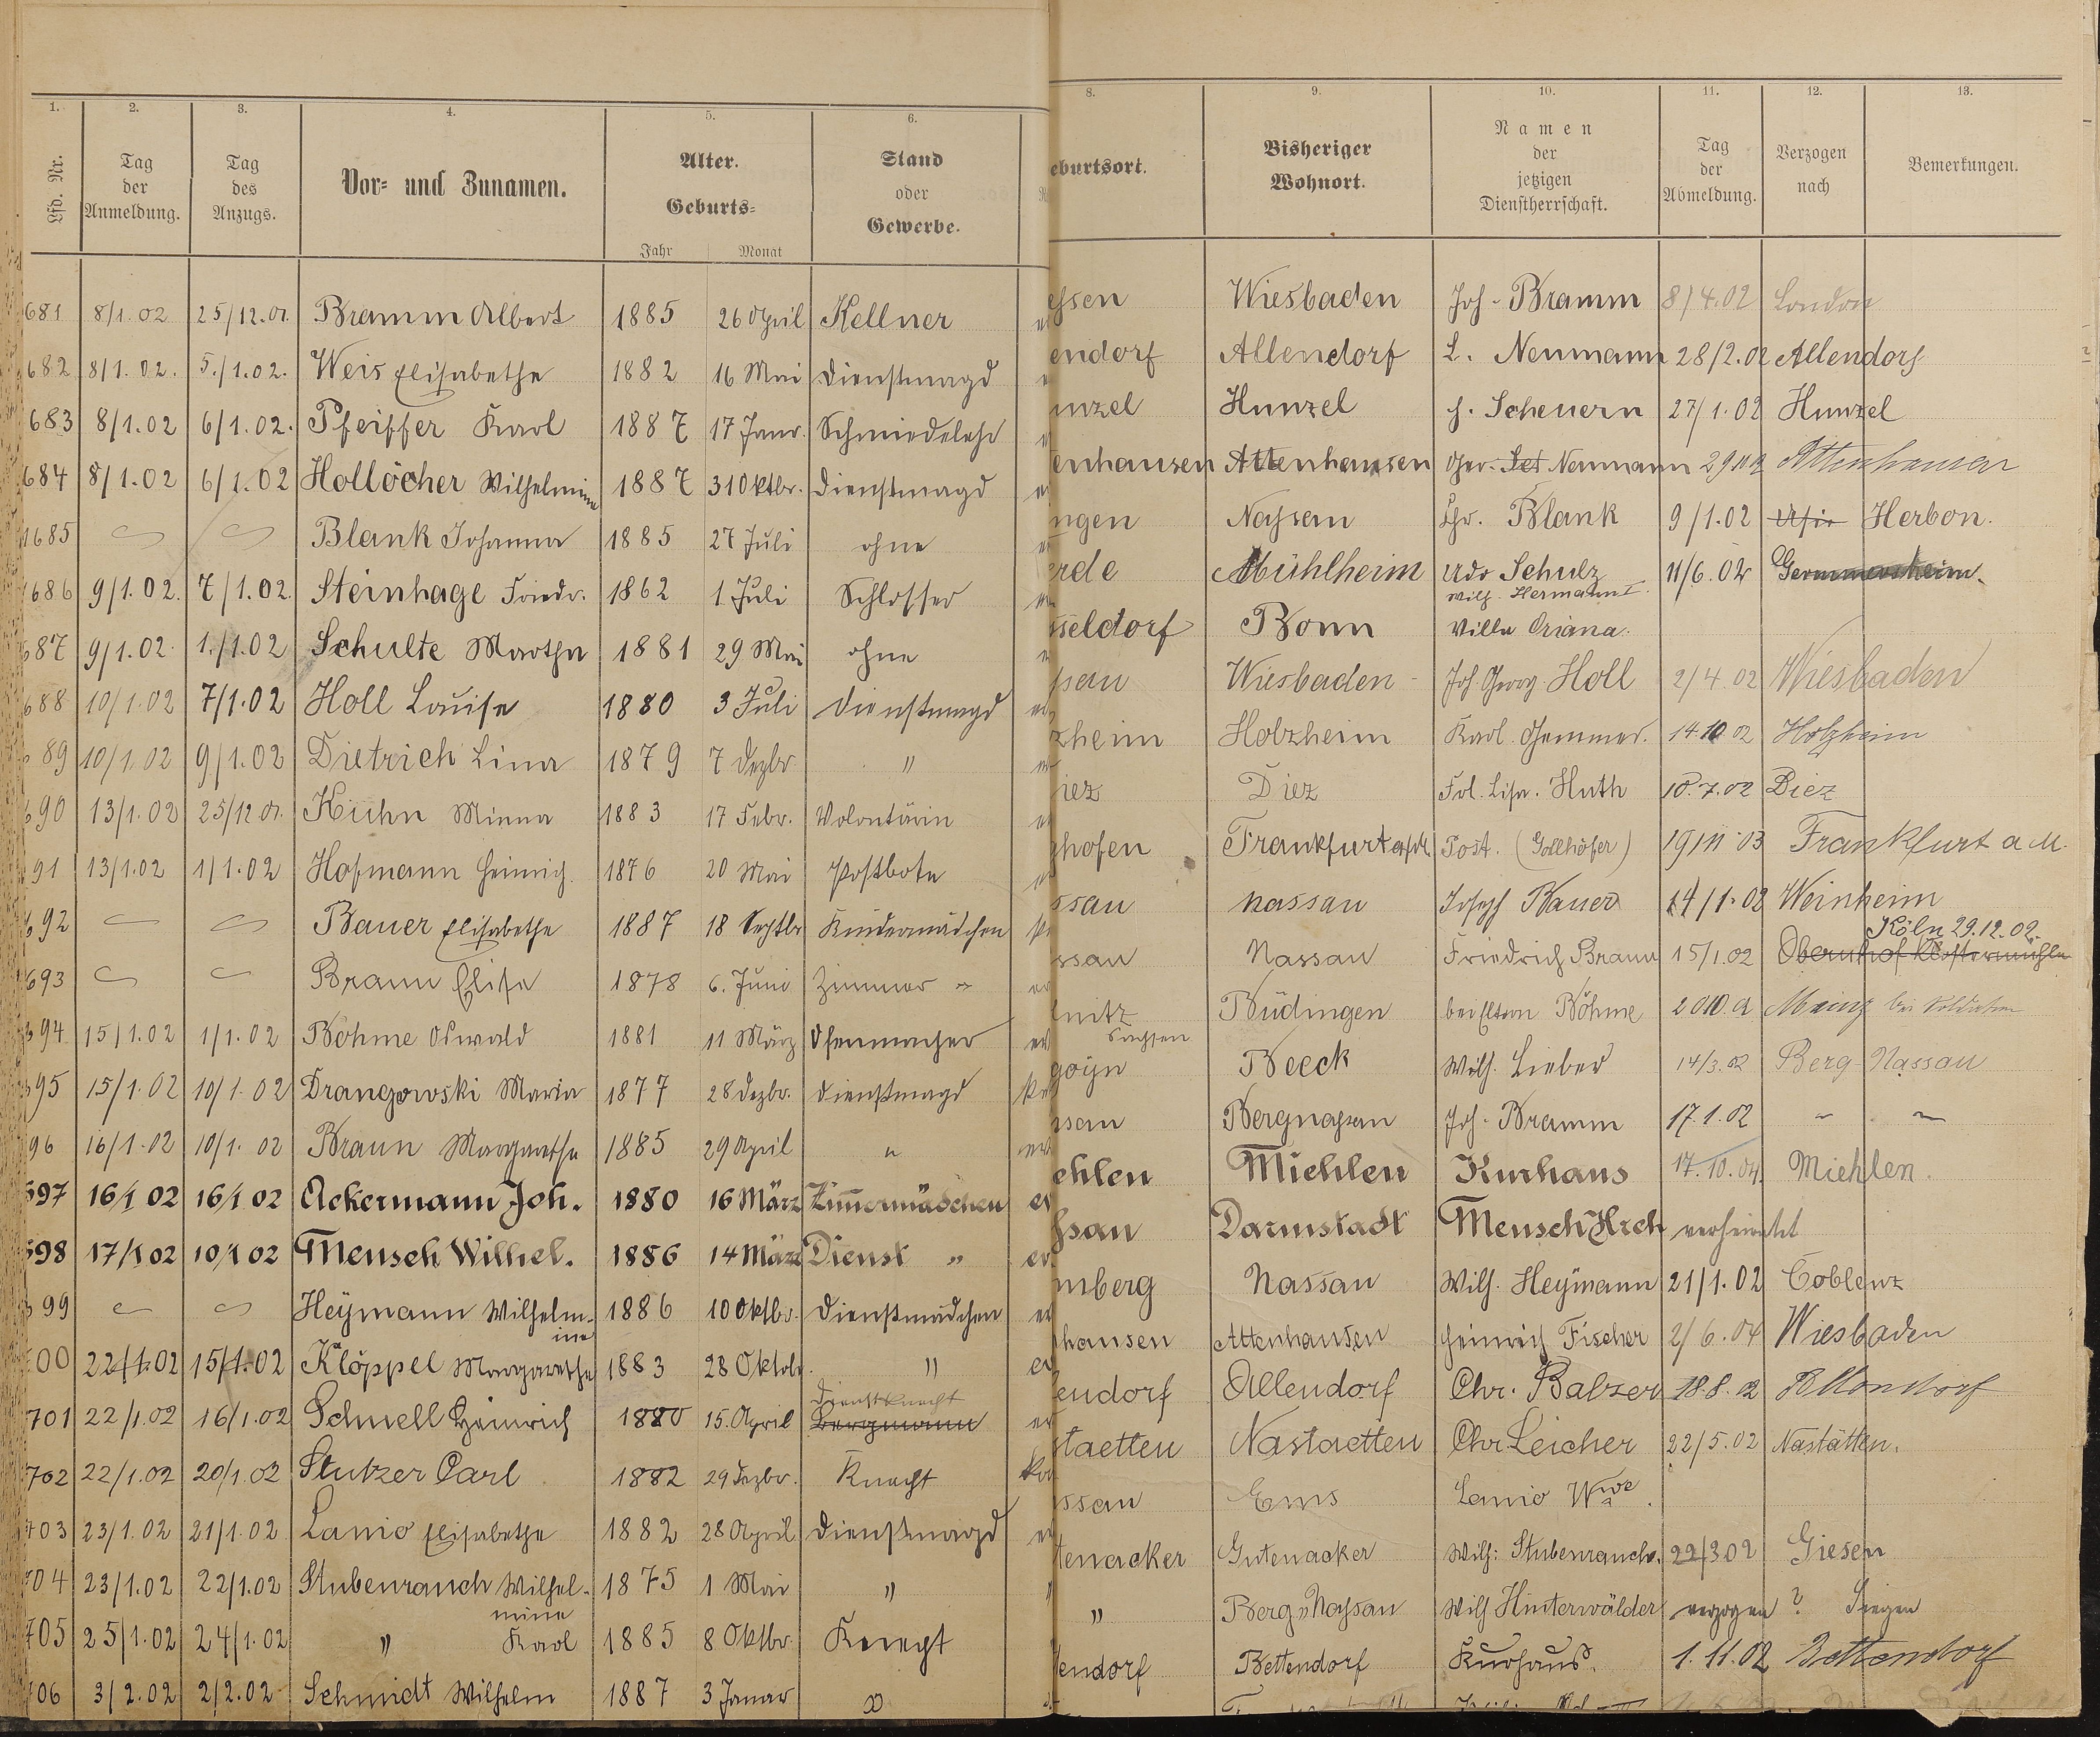 1. 2. 3. 4. 5. 6. 8. 9. 10. 11. 12. 13.
Lfd. Nr. Tag der Anmeldung. Tag des Anzugs. Vor- und Zunamen. Alter. Geburts- Jahr Monat Stand oder Gewerbe. eburtsort. Bisheriger Wohnort. Namen der jetzigen Dienstherrschaft. Tag der Abmeldung. Verzogen nach Bemerkungen.
681 8/1.02 25/12.01. Bramm Albert 1885 26 April Kellner essen Wiesbaden Joh. Bramm 8/4.02 London
682 8/1.02. 5./1.02. Weis Elisabethe 1882 16 Mai Dienstmagd endorf Allendorf L. Neumann 28/2.02 Allendorf
683 8/1.02 6/1.02. Pfeiffer Karl 1887 17 Janr. Schmiedelehr unzel Hunzel H. Scheuern 27/1.02 Hunzel
684 8/1.02 6/1.02 Hollöcher Wilhelmine 1887 31 Oktbr. Dienstmagd enhausen Attenhausen Neumann Attenhausen
1685 Blank Johanna 1885 27 Juli ohne ngen Nassau Chr. Blank 9/1.02 Herbon.
1686 9/1.02. 7/1.02. Steinhage Friedr. 1862 1 Juli Schlosser rde Mühlheim Udo Schulz 11/6.02 Germersheim.
Wilh. Hermann
687 9/1.02. 1./1.02 Schulte Martha 1881 29 Mai ohne sseldorf Bonn Villa Oriana.
688 10/1.02 7/1.02 Holl Louise 1880 3 Juli Dienstmagd ssau Wiesbaden Joh. Georg Holl 2/4.02 Wiesbaden
689 10/1.02 9/1.02 Dietrich Lina 1879 7 Dezbr " zheim Holzheim Karl Gemmer. 14.10.02 Holzheim
690 13/1.02 25/12.01. Kuhn Minna 1883 17 Febr. Volontärin iez Diez Frl. Lisa. Huth 10.7.02 Diez
91 13/1.02 1/1.02 Hofmann Heinrich. 1876 20 Mai Postbote hofen Frankfurt a/M. Post. (Gollhöfer) 19/11 03 Frankfurt a M.
692 Bauer Elisabethe 1887 18 Septbr Kindermädchen ssau Nassau Joseph Bauer 14/1.02 Weinheim
Köln 29.12.02.
693 Braun Elise 1878 6. Juni Zimmer " ssau Nassau Friedrich Braun 15/1.02 Obernhof Klostermühle
694 15/1.02 1/1.02 Böhme Oswald 1881 11 März Ofenmacher nitz Sachsen Büdingen bei Eltern Böhme Mainz bei Soldaten
695 15/1.02 10/1.02 Drangowski Maria 1877 28 Dezbr. Dienstmagd goÿn Beeck Wilh. Lieber 14/3.02 Berg-Nassau
96 16/1.02 10/1.02 Braun Margarethe 1885 29 April " ssau Bergnassau Joh. Bramm 17.1.02 " "
697 16/1 02 16/1 02 Ackermann Joh. 1880 16 März Zimmermädchen ehlen Miehlen Kurhaus 17.10.04. Miehlen.
698 17/1 02 10/1 02 Mensch Wilhel. 1886 14 März Dienst " ssau Darmstadt Mensch Hrch verheiratet
699 Heÿmann Wilhelmine 1886 10 Oktbr. Dienstmädchen mberg Nassau Wilh. Heÿmann 21/1.02 Coblenz
00 22/1.02 15/1.02 Klöppel Margarethe 1883 28 Oktobr. " hausen Attenhausen Heinrich Fischer 2/6.04 Wiesbaden
Dienstknecht
701 22/1.02 16/1.02 Schnell Heinrich 1880 15. April Bergmann endorf Allendorf Chr. Balzer 18.8.02 Allendorf
702 22/1.02 20/1.02 Stutzer Carl 1882 29 Dezbr. Knecht staetten Nastaetten Chr Leicher 22/5.02 Nastätten.
703 23/1.02 21/1.02 Lanio Elisabethe 1882 28 April Dienstmagd ssau Ems Lanio Wwe.
704 23/1.02 22/1.02 Stubenrauch Wilhelmine 1875 1 Mai " tenacker Gutenacker Wilh: Stubenrauch. 22/3 02 Giesen
705 25/1.02 24/1.02 " Karl 1885 8 Oktbr. Knecht " Berg-Nassau Wilh Hinterwälder verzogen ? Siegen
706 3/2.02 2/2.02 Schmidt Wilhelm 1887 3 Januar endorf Bettendorf Kurhaus. 1.11.02 Bettendorf